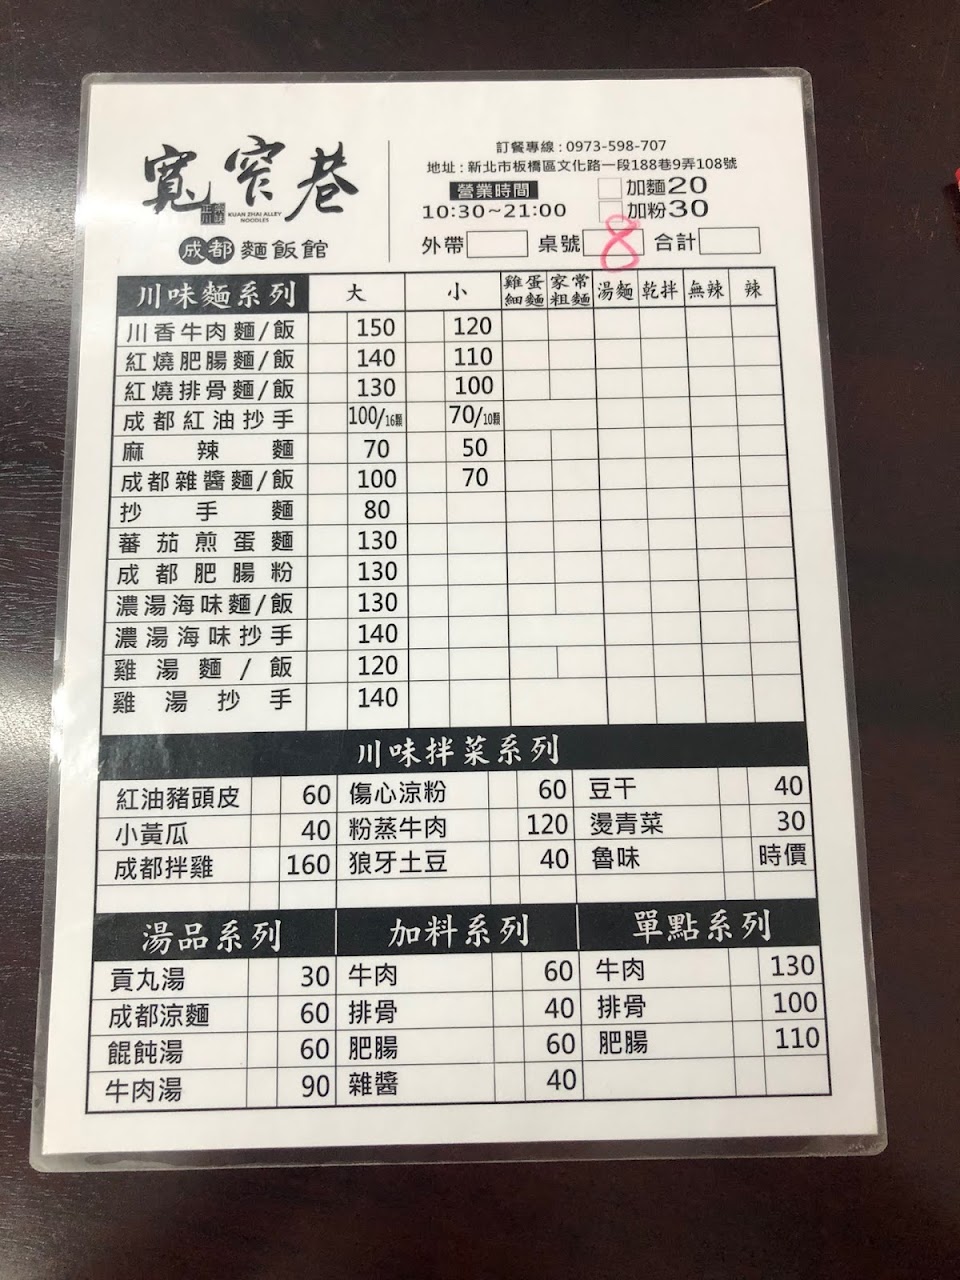 寬窄巷
正宗川味
KUAN ZHAI ALLEY
NOODLES
成都麵飯館
訂餐專線：0973-598-707
地址：新北市板橋區文化路一段188巷9弄108號
營業時間 加麵20
10:30~21:00 加粉30
外帶 桌號 8 合計
川味麵系列 大 小 雞蛋細麵 家常粗麵 湯麵 乾拌 無辣 辣
川香牛肉麵/飯 150 120
紅燒肥腸麵/飯 140 110
紅燒排骨麵/飯 130 100
成都紅油抄手 100/16顆 70/10顆
麻辣麵 70 50
成都雜醬麵/飯 100 70
抄手麵 80
蕃茄煎蛋麵 130
成都肥腸粉 130
濃湯海味麵/飯 130
濃湯海味抄手 140
雞湯麵/飯 120
雞湯抄手 140
川味拌菜系列
紅油豬頭皮 60 傷心涼粉 60 豆干 40
小黃瓜 40 粉蒸牛肉 120 燙青菜 30
成都拌雞 160 狼牙土豆 40 魯味 時價
湯品系列 加料系列 單點系列
貢丸湯 30 牛肉 60 牛肉 130
成都涼麵 60 排骨 40 排骨 100
餛飩湯 60 肥腸 60 肥腸 110
牛肉湯 90 雜醬 40